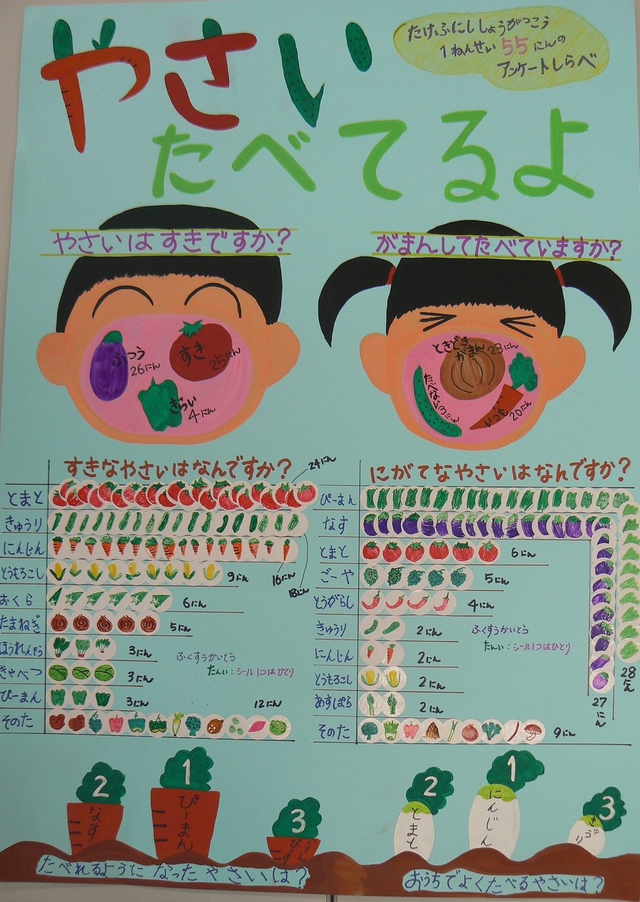 やさい
たべてるよ
たけふにししょうがっこう
1ねんせい 55にんの
アンケートしらべ
やさいはすきですか?
ふつう
26にん
すき
25にん
きらい
4にん
がまんしてたべていますか?
ときどき
がまん 23にん
いつも
20にん
すきなやさいはなんですか?
24にん
とまと
きゅうり
にんじん
16にん
18にん
とうもろこし 9にん
おくら 6にん
たまねぎ 5にん
ほうれんそう 3にん
きゃべつ 3にん
ぴーまん 3にん
そのた 12にん
ふくすうかいとう
たんい:シール1つはひとり
にがてなやさいはなんですか?
ぴーまん 28にん
なす 27にん
とまと 6にん
ごーや 5にん
とうがらし 4にん
きゅうり 2にん
にんじん 2にん
とうもろこし 2にん
あすぱら 2にん
そのた 9にん
ふくすうかいとう
たんい:シール1つはひとり
2
なす
1
ぴーまん
3
たべれるようになったやさいは?
2
とまと
1
にんじん
3
きゅうり
おうちでよくたべるやさいは?